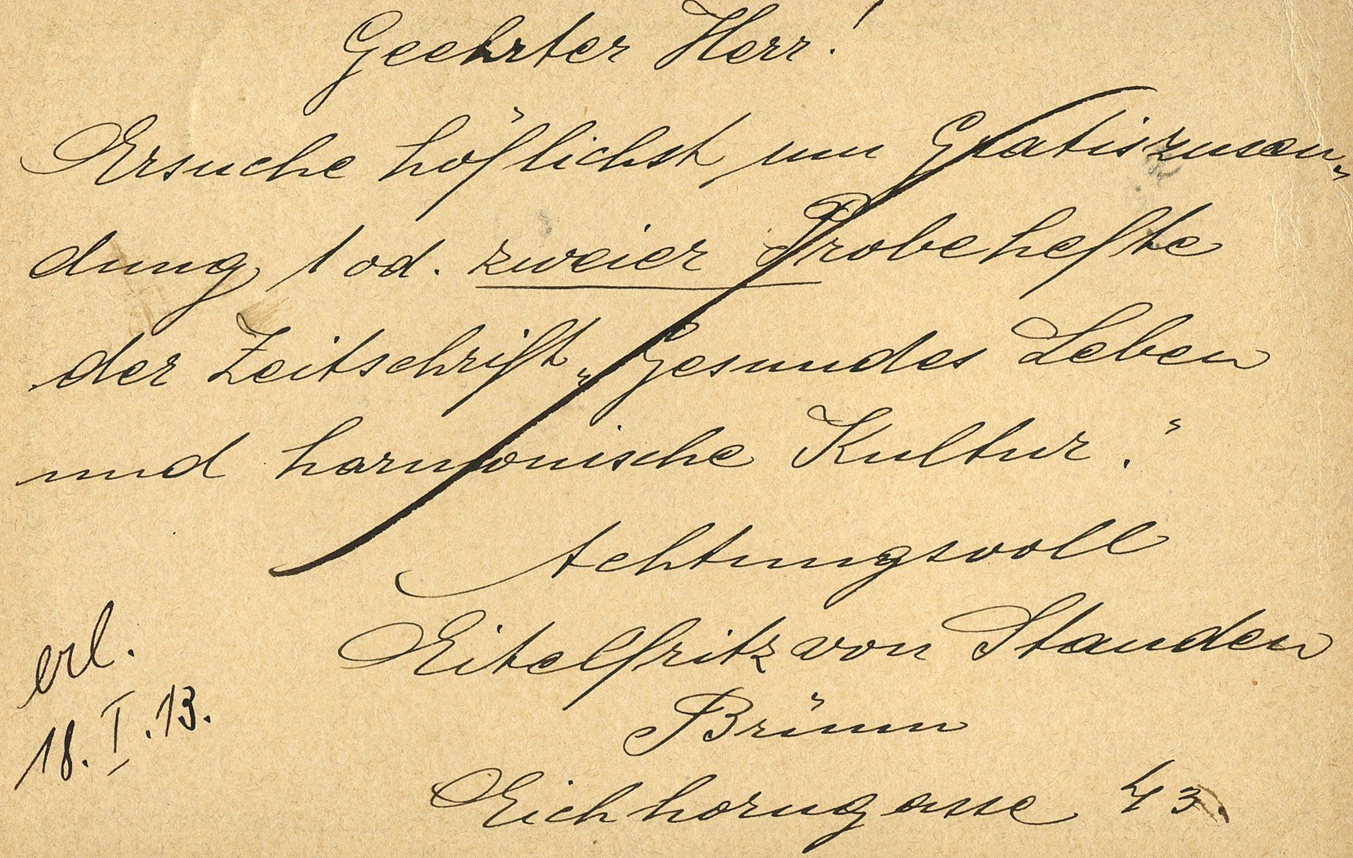 Geehrter Herr!
Ersuche höflichst, um Gratiszusen-
dung 1 od. zweier Probehefte
der Zeitschrift „Gesundes Leben
und harmonische Kultur."
Achtungsvoll
Eitelfritz von Standen
Brünn
Eichhorngasse 43.
erl.
18. I. 13.